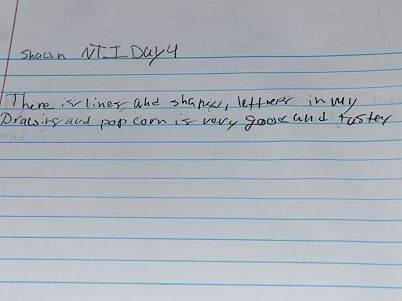 shawn NTI Day 4
There is lines and shapes, letters in my
Drawing and pop corn is very good and taster